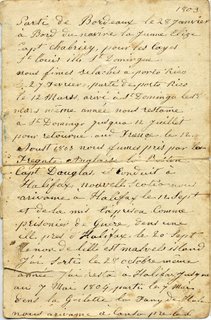 1803
Partie de Bordeaux le 28 Janvier
à Bord du navire la Jeune Elize
Capt Chabrisy, pour les Cayes
St Louis île St Domingue
nous fimes relachés a porto Rico
27 Fevrier, partie de porto Rico
le 12 Mars, arivé à St Domingue le
Mars même année nous restame
à St Domingue jusquà 12 Juillet
pour retourné au France le 12
Aoust 1803 nous fumes pris par la
Frégate Anglaise la Boston
Capt Douglas, et conduit à
Halifax, nouvelle
arivame à Halifax le 12 Sept
et de la mit la prison comme
prisonier de Guere, dans une
île, pres d'Halifax le 20 Sept
le nom de lile est melvil island
J'ai Sortie le 28 octobre même
année J'ai resté à Halifax Jusqu
au 7 Mai 1804 partie le 7 may
dans la Goilette la Fany de
nous arivame à Canso pres le